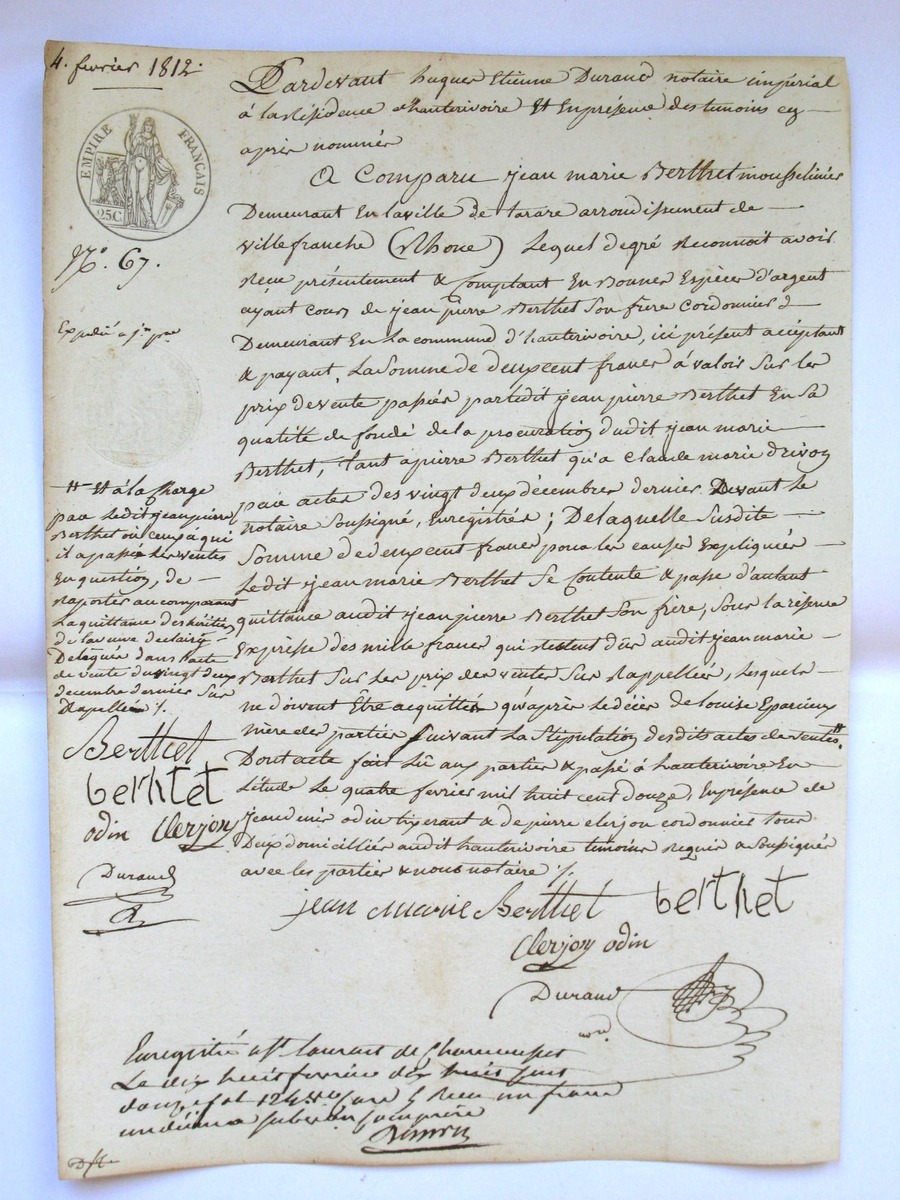 4. fevrier 1812.
EMPIRE FRANÇAIS
25C
N.o 67.
Expédié
Pardevant hugues Etienne Durand notaire impérial
à la Résidence d'hauterivoire Et En présence des temoins cy
après nommés
A Comparu jean marie Berthet mousselinier
Demeurant En la ville de tarare arrondissement de
Villefranche (Rhone) Lequel degré Reconnoit avoir
Recu présentement & Comptant En Bonnes Espèces d'argent
ayant Cours de jean pierre Berthet Son frère Cordonnier
Demeurant En La commune d'hauterivoire, ici présent acceptant
& payant, La Somme de deux cent francs à valoir Sur les
prix de vente passés par ledit jean pierre Berthet En Sa
qualité de fondé de la procuration dudit jean marie
Berthet, tant a pierre Berthet qu'a Claude marie
par actes des vingt deux décembre dernier Devant Le
notaire Soussigné, Enregistrés; De laquelle Susdite
Somme de deux cent francs pour les causes Expliquées
Ledit jean marie Berthet Se Contente & passe d'autant
quittance audit jean pierre Berthet Son frère, Sous la réserve
Expresse des mille francs qui restent dûs audit jean marie
Berthet Sur Les prix des ventes Sus Rappellées, Lesquels
ne doivent Être acquittés qu'après Le décès de Louise Eparcieux
mère des parties Suivant La Stipulation desdits actes de ventes #.
Dont acte fait Lû aux parties & passé à hauterivoire En
L'étude Le quatre fevrier mil huit cent douze, En présence de
jean denis odin tixerant & de pierre clerjon cordonnier tous
Deux domiciliés audit hauterivoire temoins requis & Soussignés
avec les parties & nous notaire ./.
# Et à la Charge
par Ledit jean pierre
Berthet ou Ceux à qui
il a passé Les ventes
En question, de
Raporter au comparant
La quittance des héritiers
de la veuve
Déléguée dans L'acte
de vente du vingt deux
decembre dernier Sus
Rapellée ./.
Berthet
berthet
odin Clerjon
Durand
jean marie Berthet berthet
Clerjon odin
Durand
Enregistré à St laurent de Chamousset
Le dix huit fevrier dix huit cent
douze fol 124 Reçu un franc